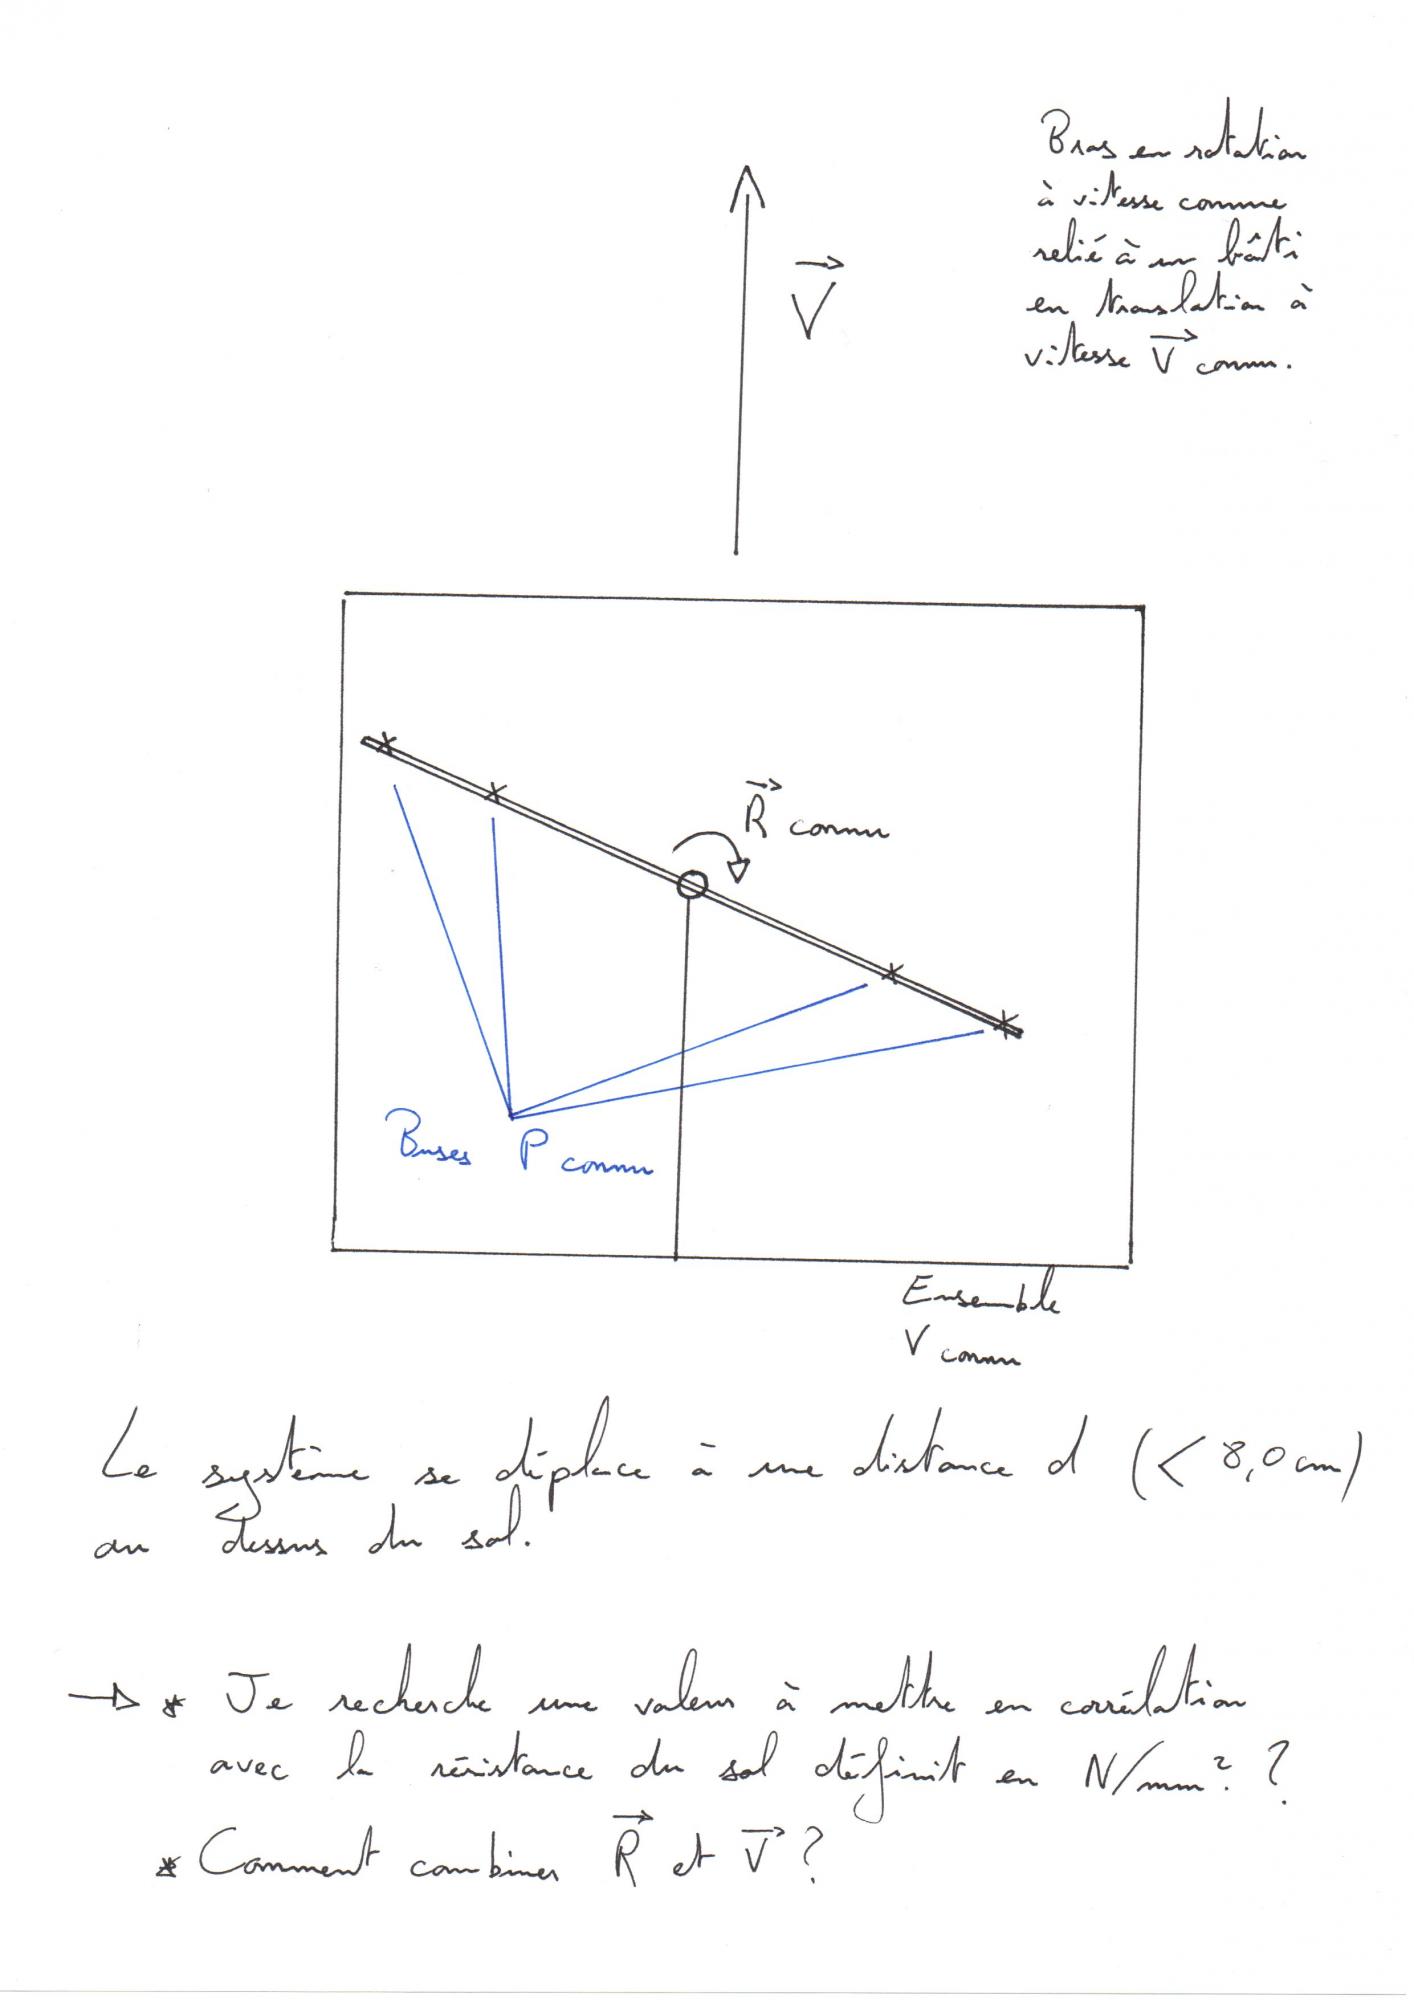 Bras en rotation
à vitesse connue
relié à un bâti
en translation à
vitesse V connu.
V
R connu
Buses P connu
Ensemble
V connu
Le système se déplace à une distance d (< 8,0 cm)
au dessus du sol.
→ * Je recherche une valeur à mettre en corrélation
avec la résistance du sol définit en N/mm² ?
* Comment combiner R et V ?